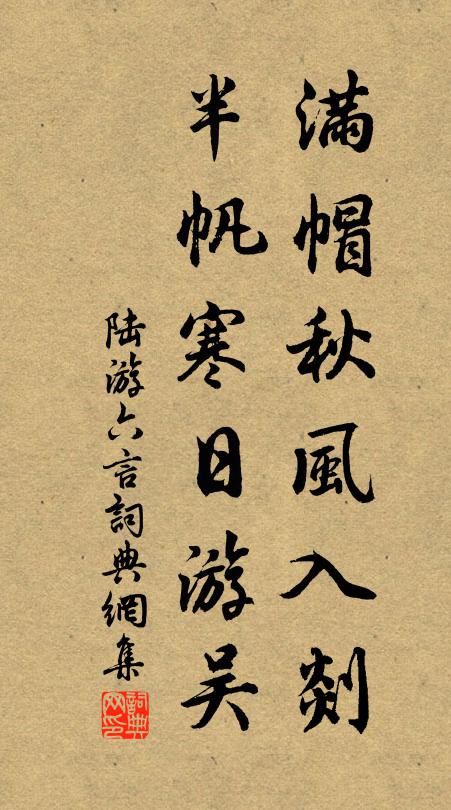 滿帽秋風入剡
半帆寒日游吴
陆游六言詞典網集
詞典网印